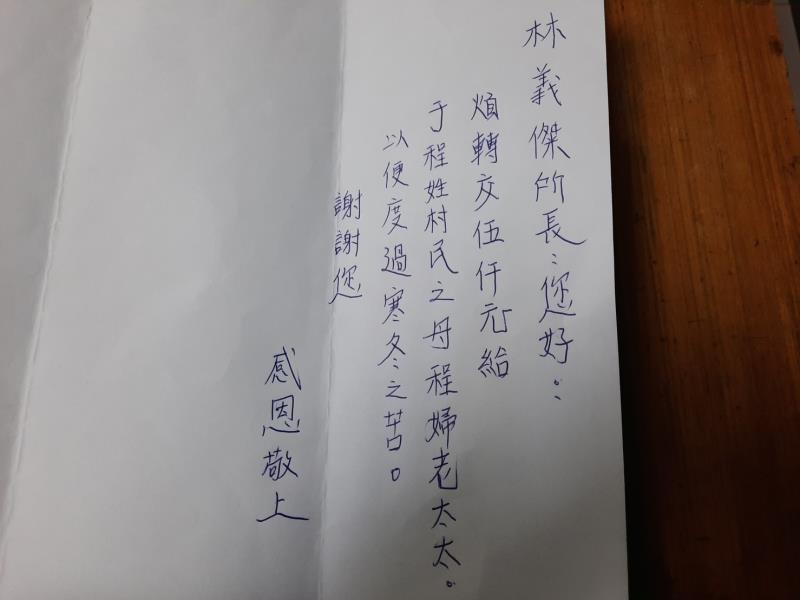 林義傑所長:您好:
煩轉交伍仟元給
于程姓村民之母程婦老太太。
以便度過寒冬之苦。
謝謝您
感恩敬上